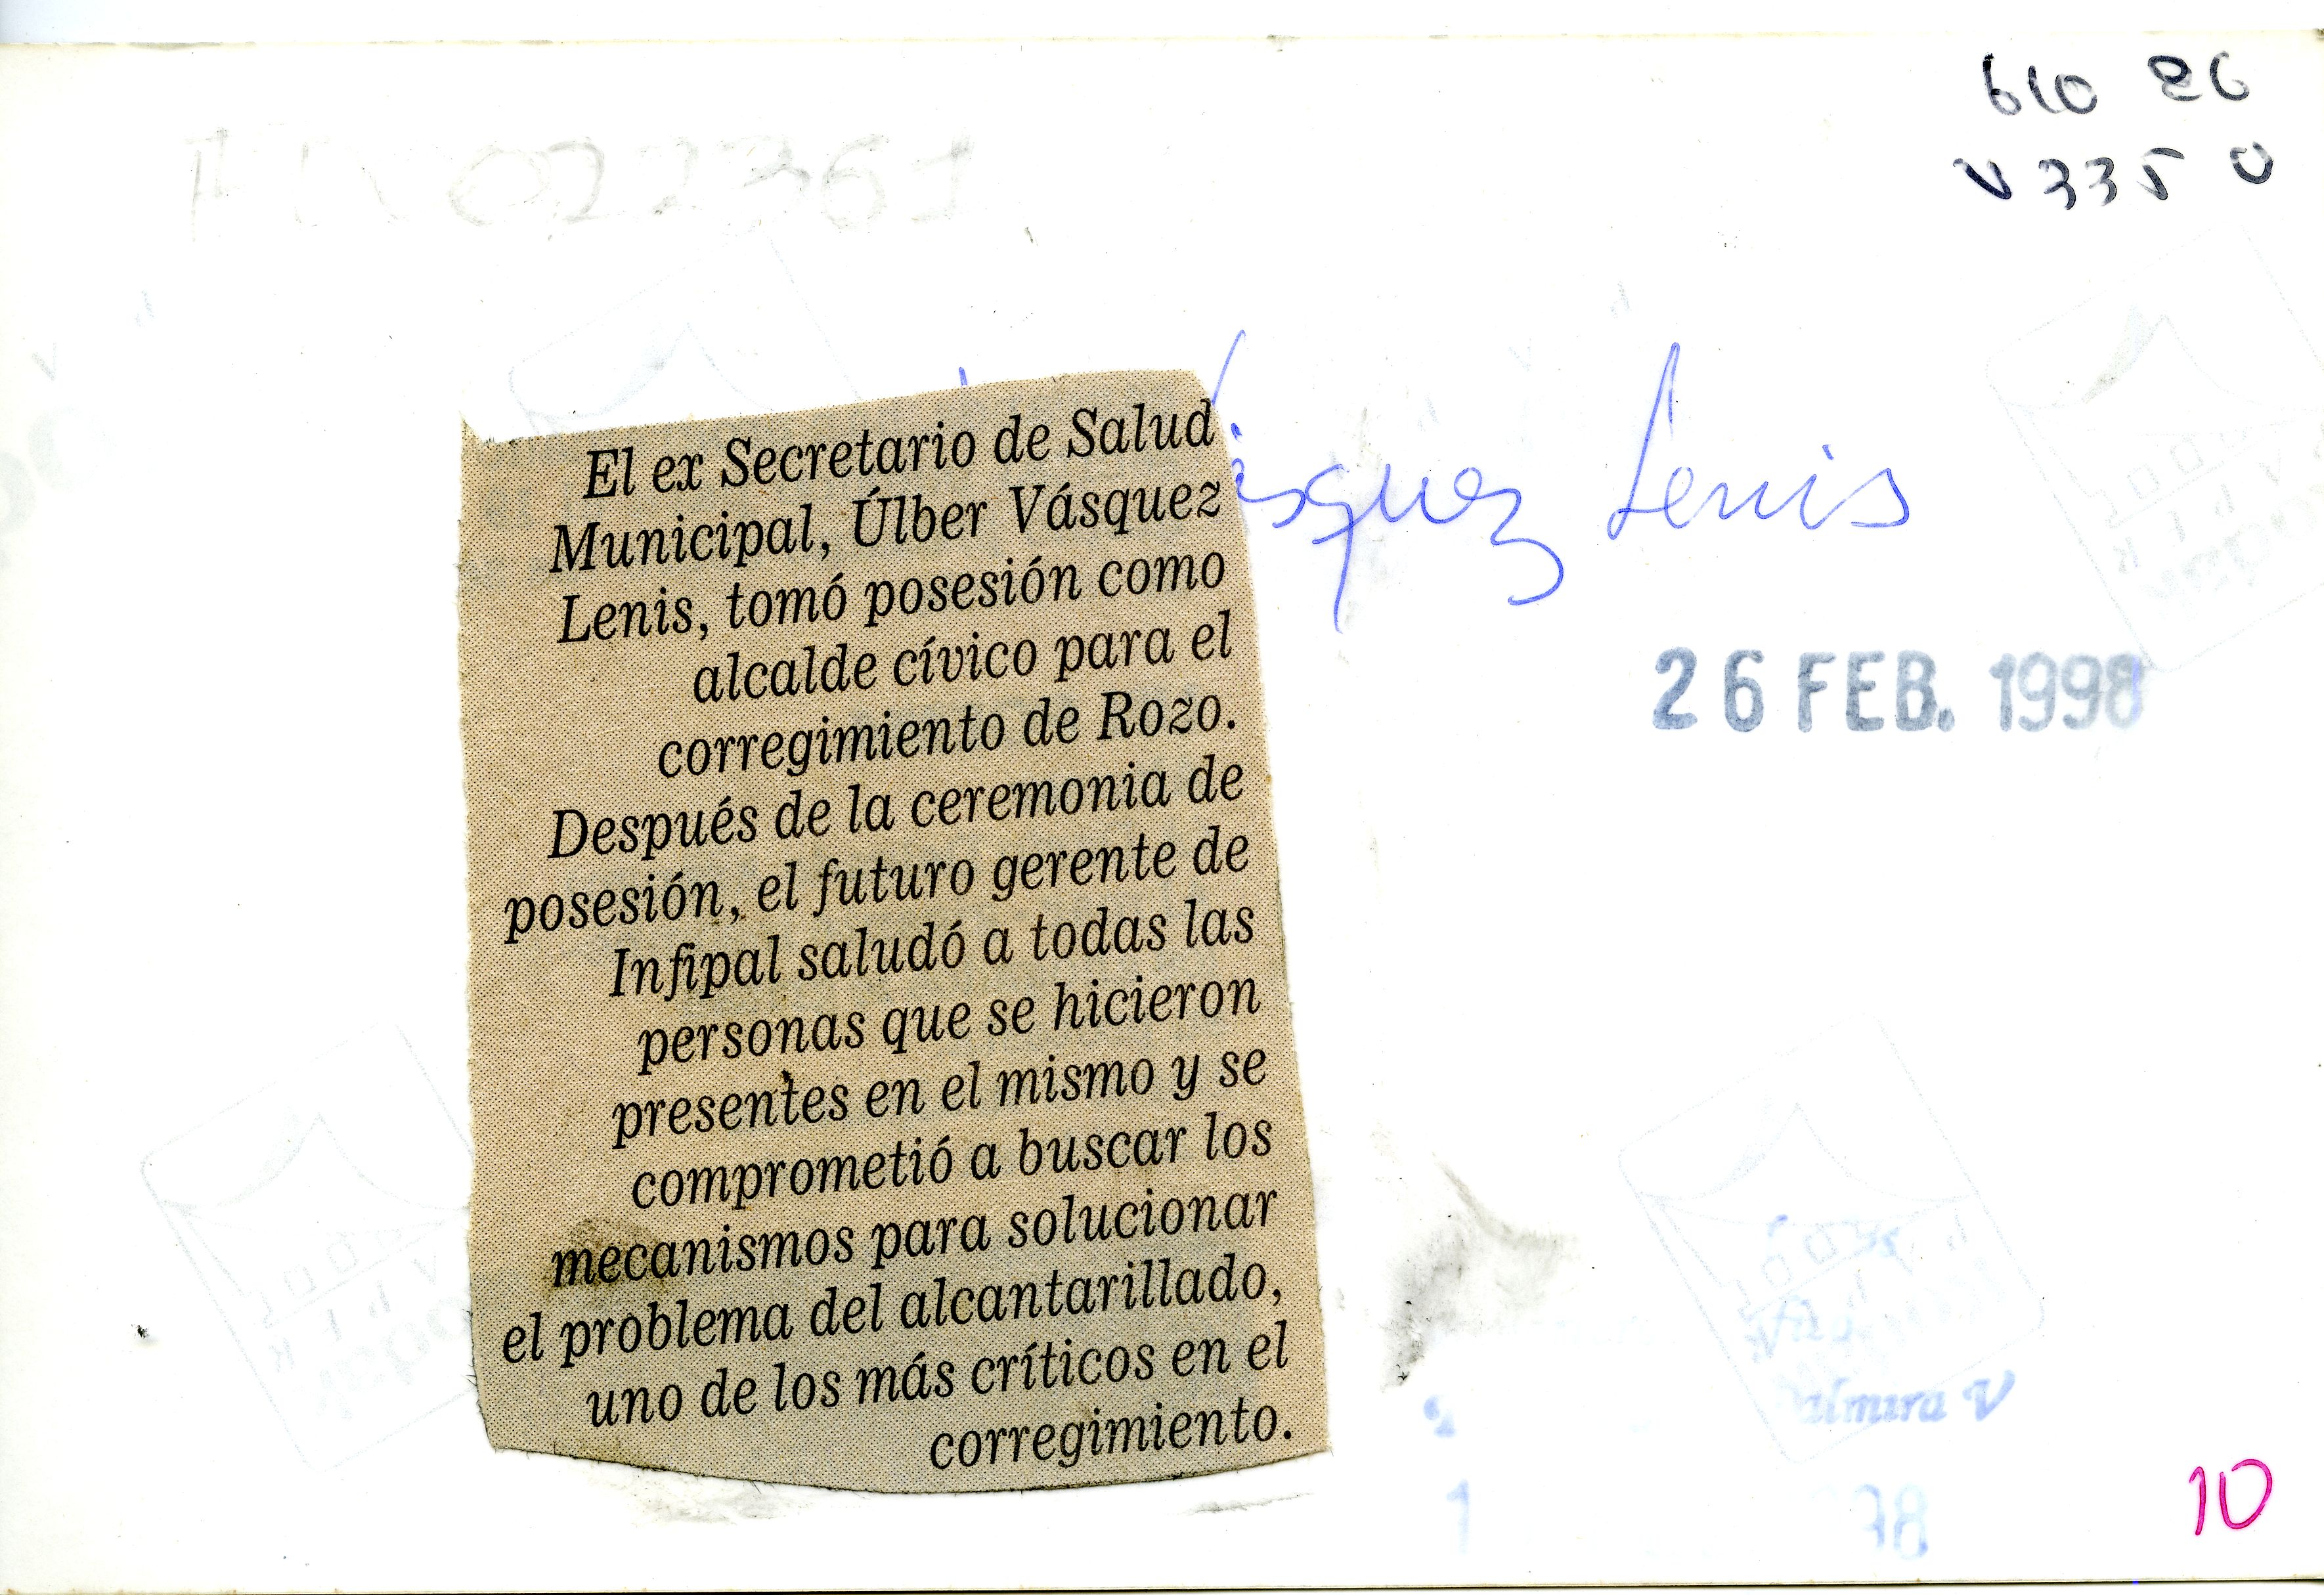 610 86
V 335 U
022361
Vásquez Lenis
26 FEB. 1998
El ex Secretario de Salud
Municipal, Úlber Vásquez
Lenis, tomó posesión como
alcalde cívico para el
corregimiento de Rozo.
Después de la ceremonia de
posesión, el futuro gerente de
Infipal saludó a todas las
personas que se hicieron
presentes en el mismo y se
comprometió a buscar los
mecanismos para solucionar
el problema del alcantarillado,
uno de los más críticos en el
corregimiento.
10